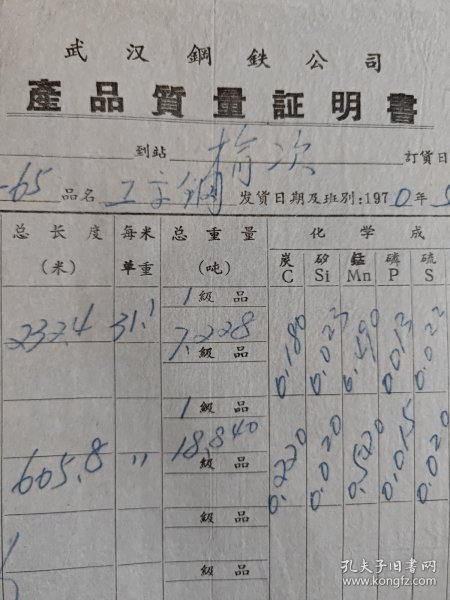 武汉鋼鉄公司
產品質量証明書
到站 榆次 訂貨日
-65 品名 工字鋼 发貨日期及班別:1970年5
总长度 每米 总重量 化学成
(米) 單重 (吨) 炭C 矽Si 錳Mn 磷P 硫S
1級品
232.4 31.1 7.228 0.180 0.023 0.490 0.013 0.022
級品
1級品
605.8 〃 18.840 0.220 0.020 0.520 0.015 0.020
級品
級品
級品
孔夫子旧書网
www.kongfz.com